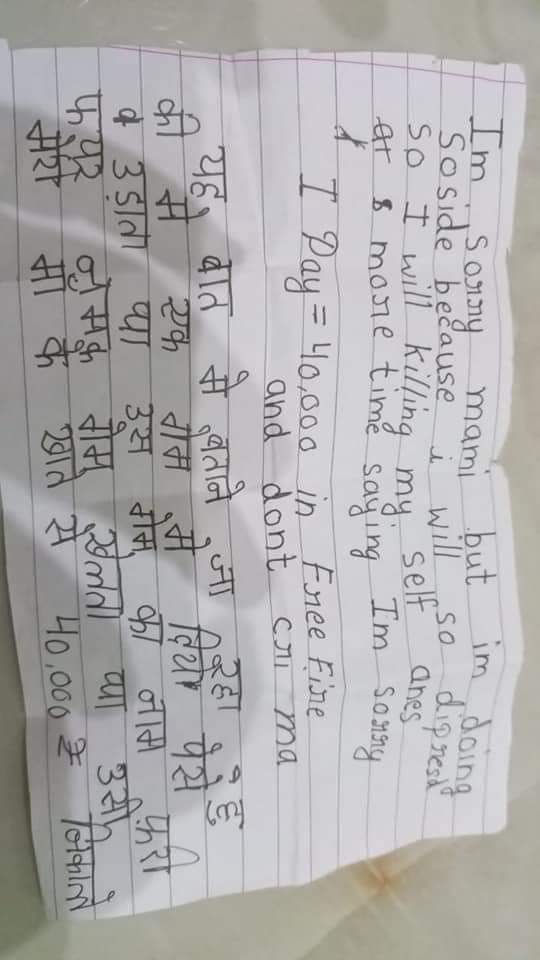 Im sorry mami but im doing
Soside because i will so dipresd
so I will killing my self anes
more time saying Im sorry
I Pay = 40,000 in Free Fire
and dont cri ma
यह बात मे बताने जा रहा हूँ
की मे एक गेम मे दिया पेसे
व उडाता था उस गेम का नाम फ्री
फायर गेम खेलता था उसी
मेरी मा के खाते से 40,000 रु निकाले